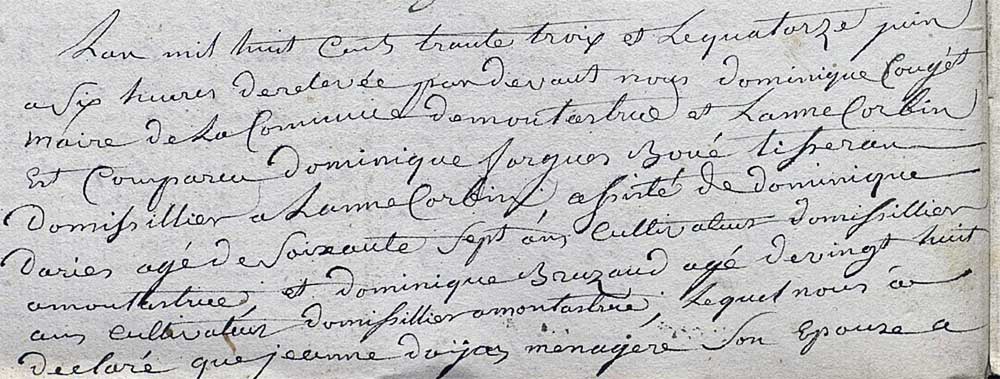 Lan mil huit Cent trante troix et Lequatorze juin
a six heures derelevée par devant nous dominique Cougét
maire de La Commune demontastruc et LanneCorbin
Est Comparen dominique forgues Boué tisseran
domissillier a LanneCorbin assisté de dominique
daries agé de soixante sept ans Cultivateur domissillier
amontastruc, et dominique Bruzaud agé devingt huit
ans Cultivateur domissillier amontastruc, Lequel nous a
declaré que jeanne dojas ménagéré son Epouse a